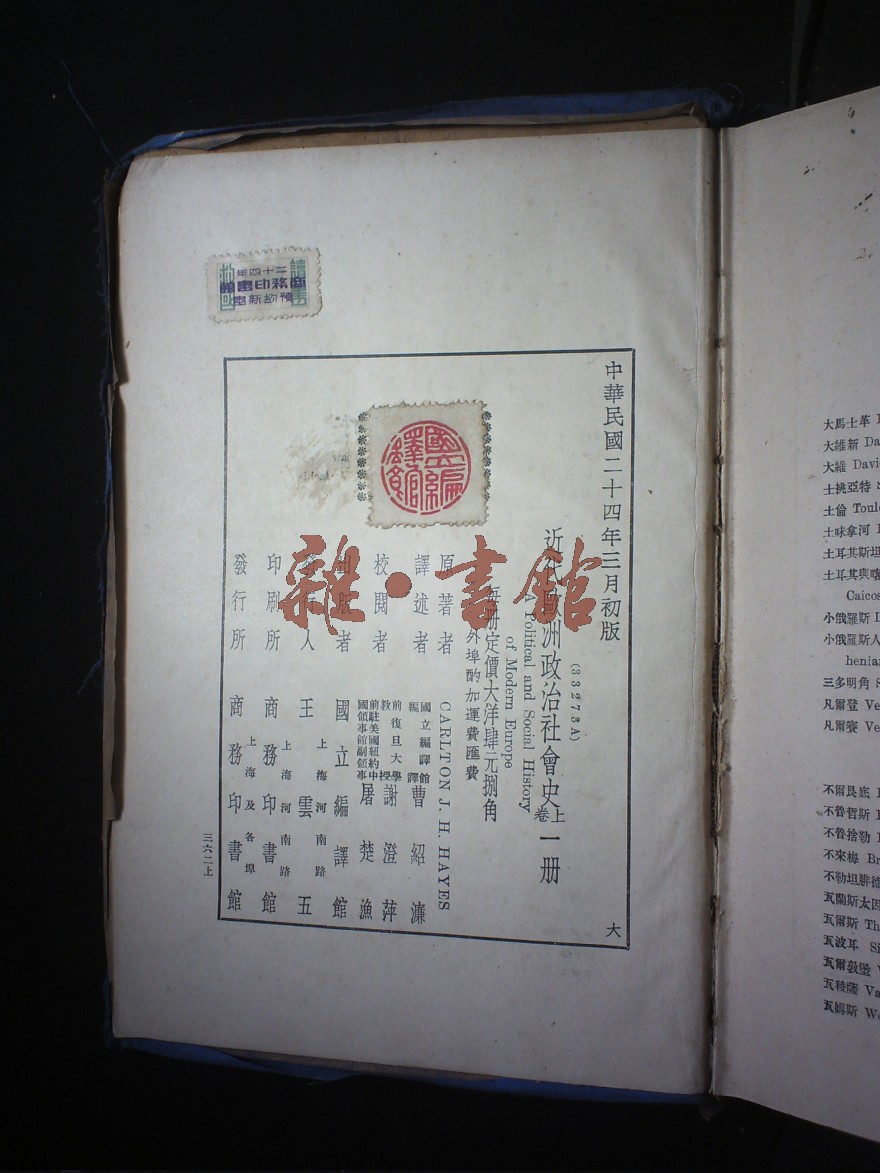 中華民國二十四年三月初版
(33273A)
近代歐洲政治社會史上卷一册
A Political and Social History
of Modern Europe
每册定價大洋肆元捌角
外埠酌加運費匯費
原著者 CARLTON J. H. HAYES
譯述者 國立編譯館編譯 曹紹濂
校閱者 前復旦大學教授 謝澄萍
前駐美國紐約中國領事館副領事 屠楚漁
出版者 國立編譯館
發行人 王雲五 上海河南路
印刷所 商務印書館 上海河南路
發行所 商務印書館 上海及各埠
大
三六二上
國立編譯館
二十四年
商務印書館
預約新書
雜·書館
大馬士革
大維新 Da
大維 Davi
士挑亞特
土倫 Toul
土味拿河
土耳其斯坦
土耳其與喀
Caicos
小俄羅斯
小俄羅斯人
henian
三多明角
凡爾登 Ve
凡爾賽 Ve
不爾艮底
不魯哲斯
不魯捨勒
不來梅 Br
不勒坦腓德
瓦蘭斯太因
瓦爾斯 Th
瓦波耳 Si
瓦爾敦堡
瓦稜薩 Va
瓦姆斯 Wo